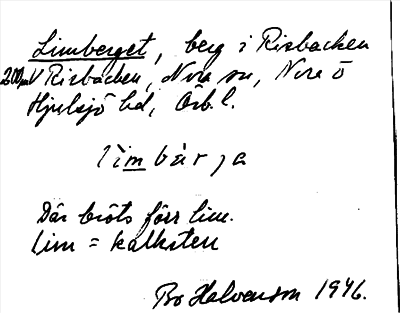 Limberget, berg i Risbacken
200m V Risbacken, Nora sn, Nora o
Hjulsjö hd, Örb. l.
lìmbárja
Där bröts förr lim.
Lim = kalksten
Bo Halvenson 1946.